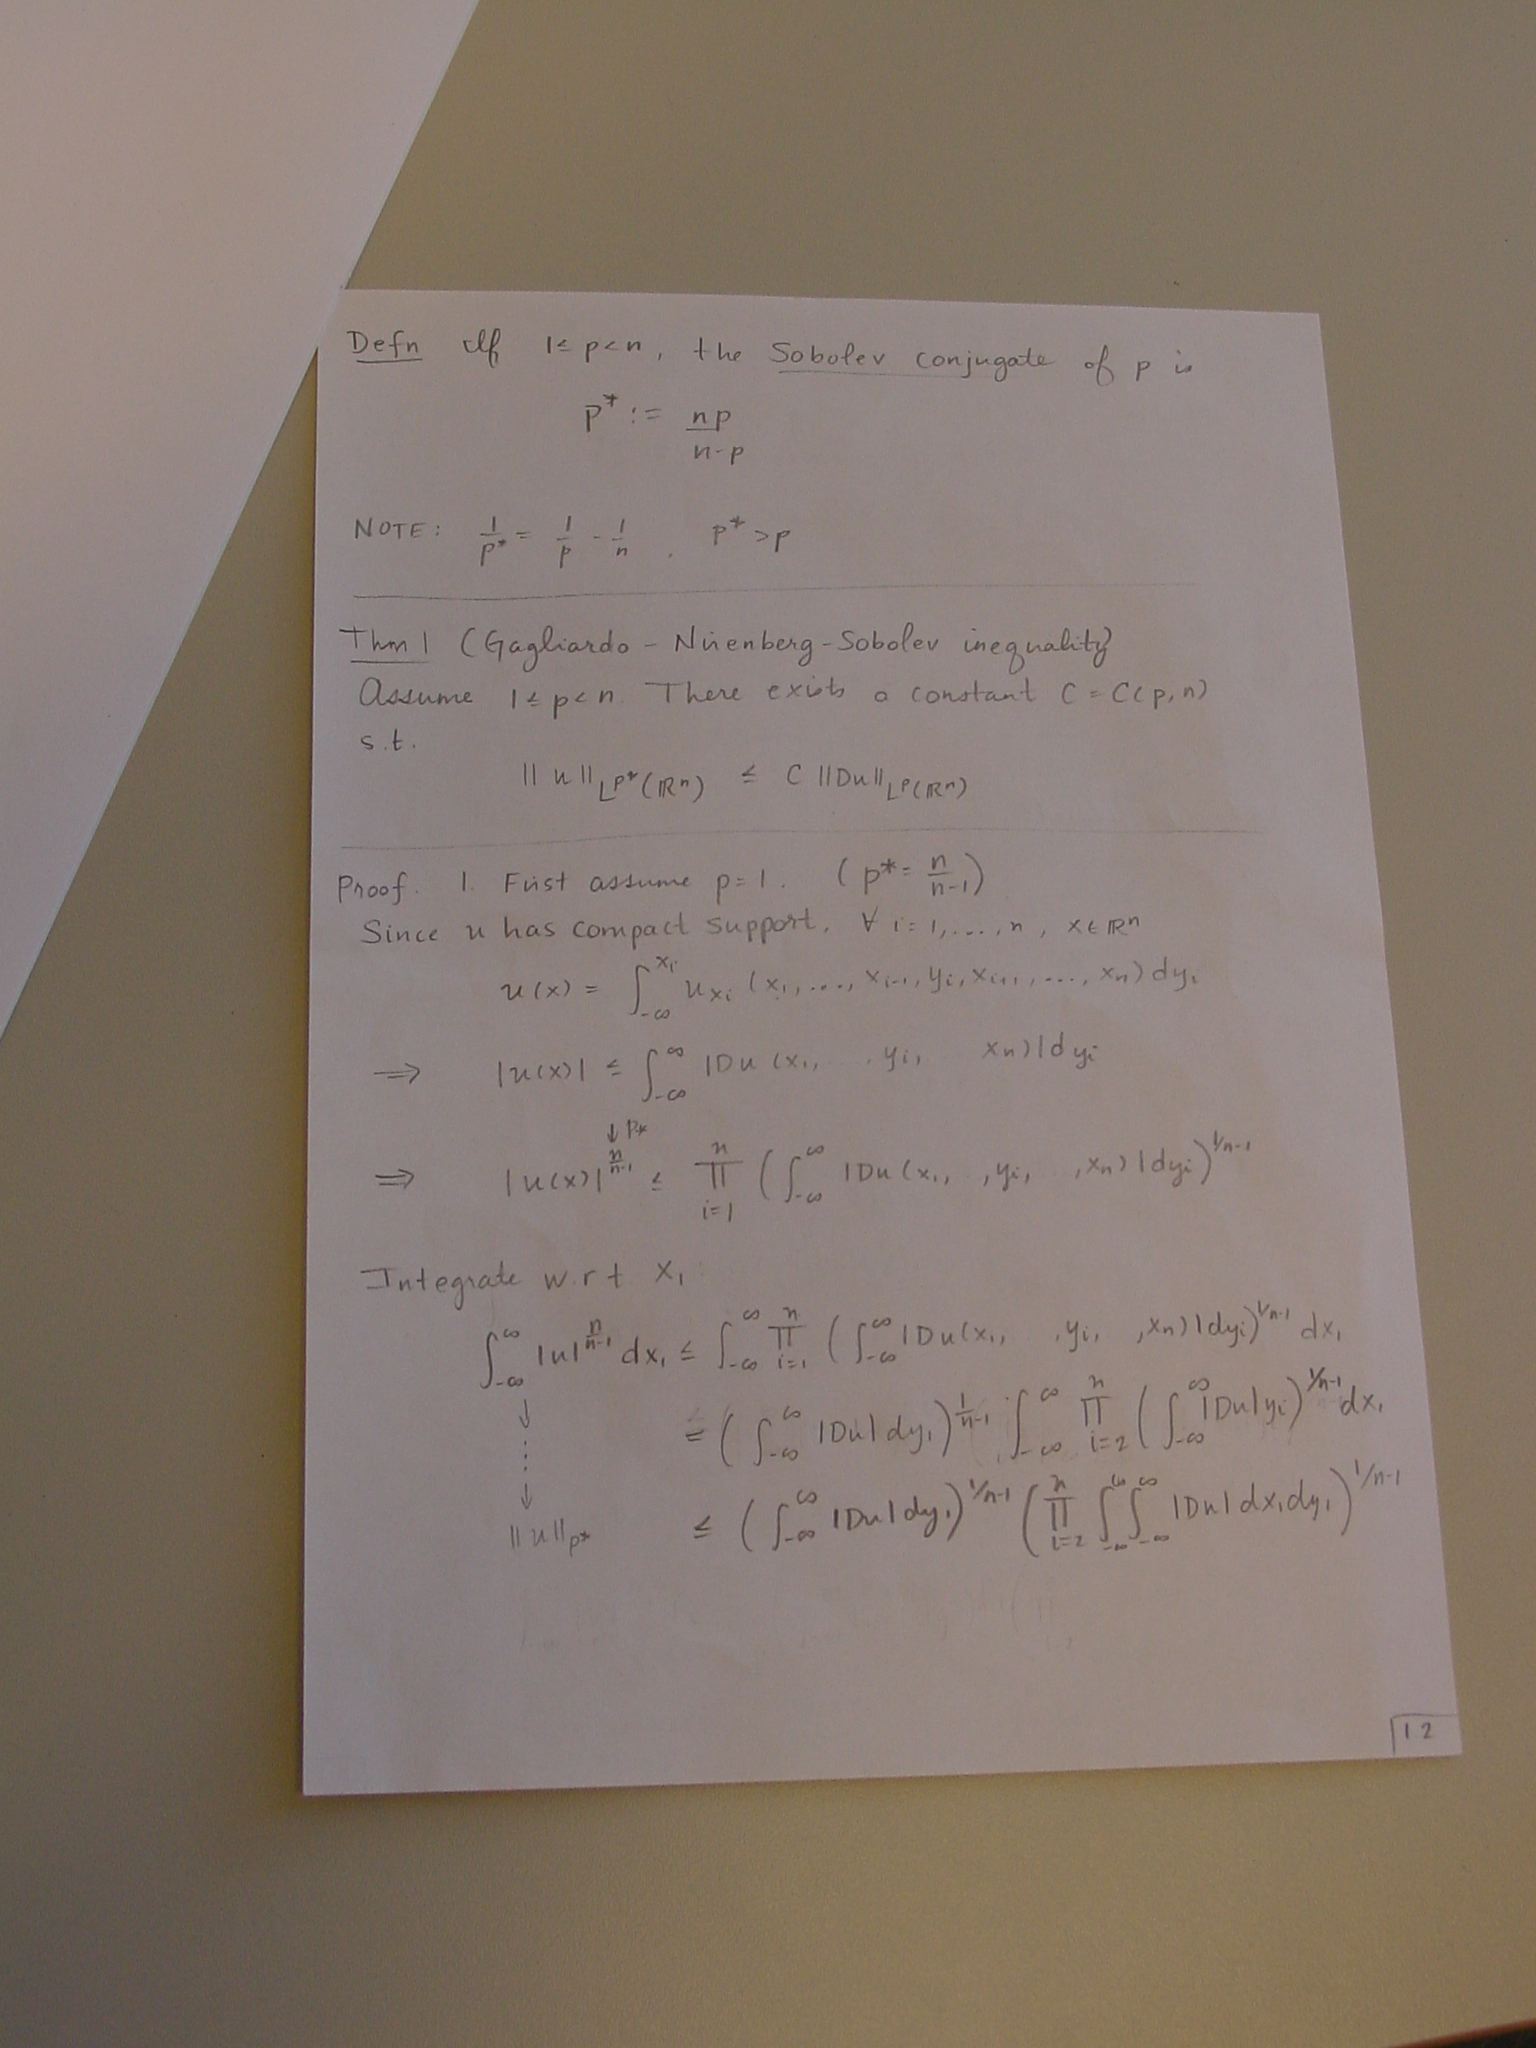 Defn If 1 ≤ p < n, the Sobolev conjugate of p is
p* := np/(n-p)
NOTE: 1/p* = 1/p - 1/n. p* > p
Thm 1 (Gagliardo - Nirenberg - Sobolev inequality)
Assume 1 ≤ p < n. There exists a constant C = C(p,n)
s.t.
||u||_{L^{p*}(ℝⁿ)} ≤ C ||Du||_{L^p(ℝⁿ)}
Proof. 1. First assume p=1. (p* = n/(n-1))
Since u has compact support, ∀ i = 1,...,n, x ∈ ℝⁿ
u(x) = ∫_{-∞}^{x_i} u_{x_i} (x_1,...,x_{i-1},y_i,x_{i+1},...,x_n) dy_i
⇒ |u(x)| ≤ ∫_{-∞}^{∞} |Du (x_1, .. y_i, x_n)| dy_i
↓ p*
⇒ |u(x)|^{n/(n-1)} ≤ ∏_{i=1}^{n} (∫_{-∞}^{∞} |Du(x_1, ,y_i, ,x_n)| dy_i)^{1/n-1}
Integrate w.r.t x_1:
∫_{-∞}^{∞} |u|^{n/(n-1)} dx_1 ≤ ∫_{-∞}^{∞} ∏_{i=1}^{n} (∫_{-∞}^{∞} |Du(x_1, ,y_i, ,x_n)| dy_i)^{1/n-1} dx_1
↓ = (∫_{-∞}^{∞} |Du| dy_1)^{1/(n-1)} ∫_{-∞}^{∞} ∏_{i=2}^{n} (∫_{-∞}^{∞} |Du| y_i)^{1/n-1} dx_1
⋮
↓
||u||_{p*} ≤ (∫_{-∞}^{∞} |Du| dy_1)^{1/n-1} (∏_{i=2}^{n} ∫_{-∞}^{∞} ∫_{-∞}^{∞} |Du| dx_1 dy_1)^{1/n-1}
12